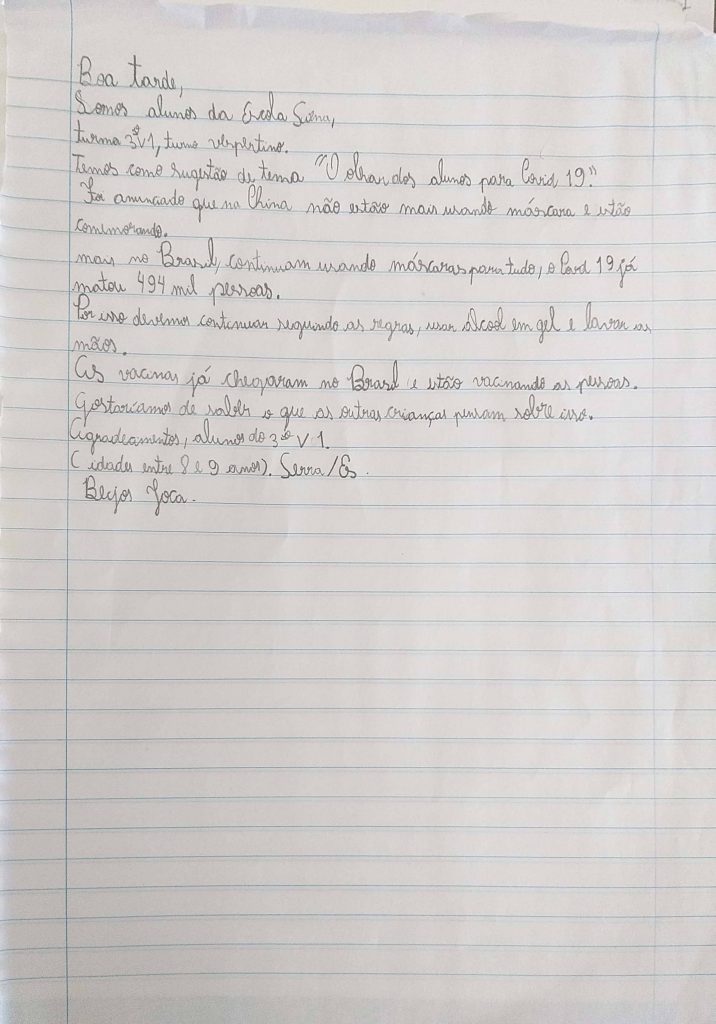 Boa tarde,
Somos alunos da Escola Suena,
turma 3º V1, turno vespertino.
Temos como sugestão de tema "O olhar dos alunos para Covid 19."
Foi anunciado que na China não estão mais usando máscara e estão
comemorando.
mais no Brasil, continuam usando máscaras para tudo, o Covid 19 já
matou 494 mil pessoas.
Por isso devemos continuar seguindo as regras, usar alcool em gel e lavar as
mãos.
As vacinas já chegaram no Brasil e estão vacinando as pessoas.
Gostariamos de saber o que as outras crianças pensam sobre isso.
Agradecimentos, alunos do 3º V1.
(idades entre 8 e 9 anos). Serra/Es.
Beijos